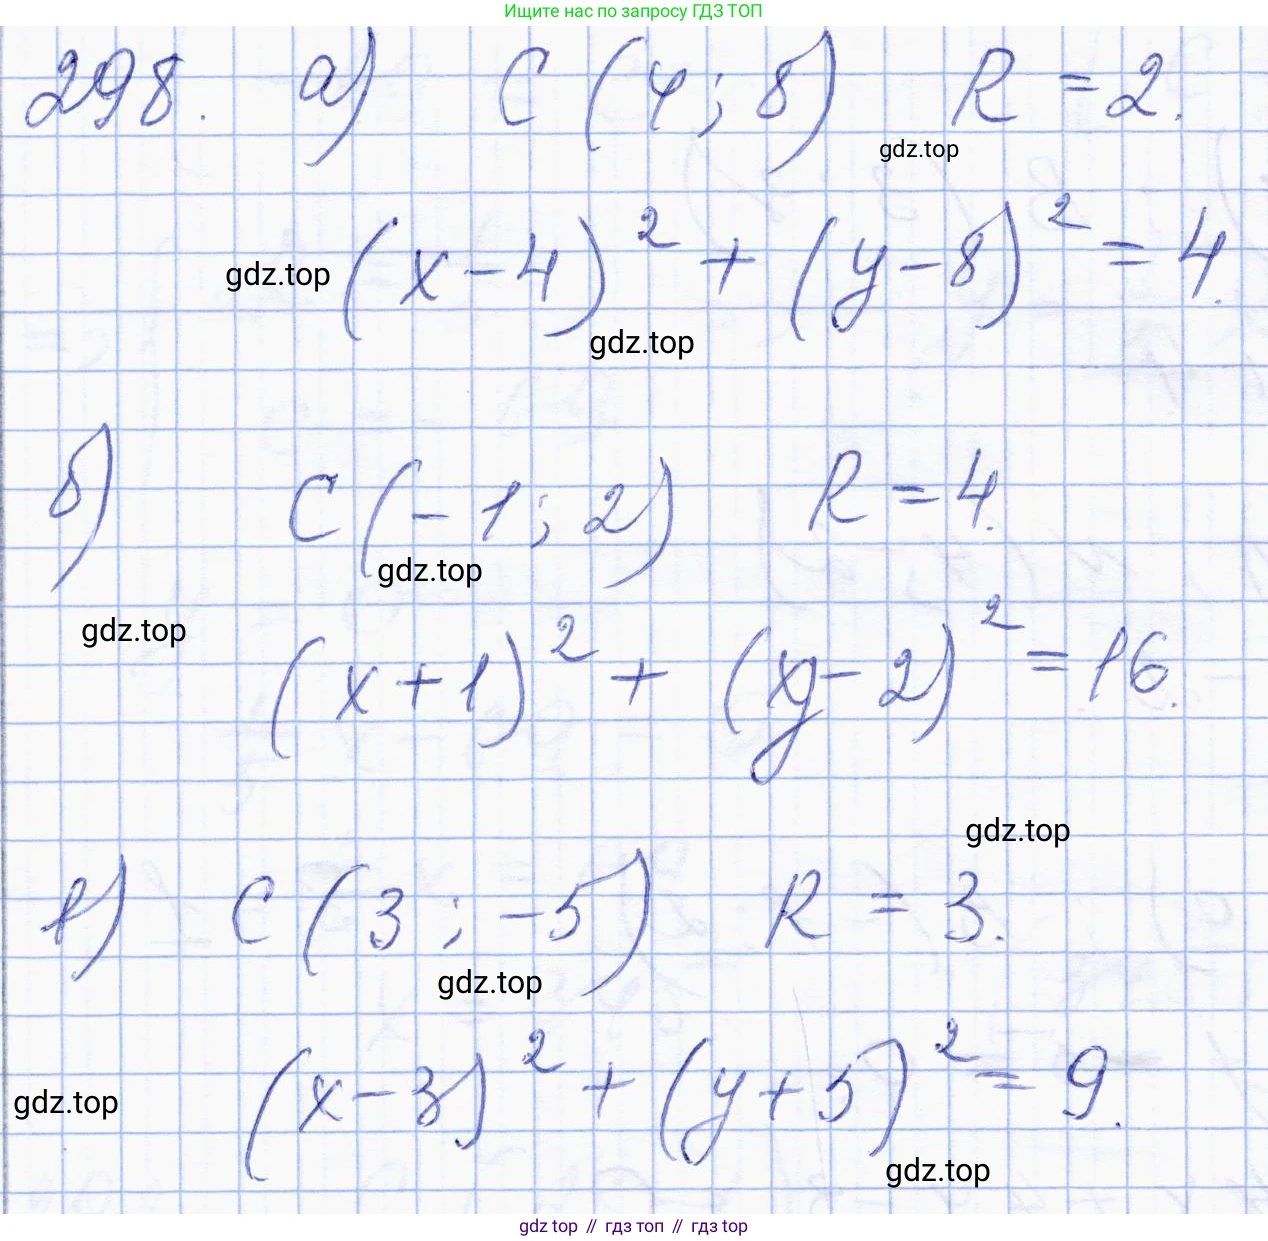 Ищите нас по запросу ГДЗ ТОП
298. а) C (4; 8) R = 2.
gdz.top
(x-4)² + (y-8)² = 4.
gdz.top
gdz.top
б) C (-1; 2) R = 4.
gdz.top
gdz.top
(x+1)² + (y-2)² = 16.
gdz.top
в) C (3; -5) R = 3.
gdz.top
(x-3)² + (y+5)² = 9.
gdz.top
gdz.top
gdz top // гдз топ // гдз top